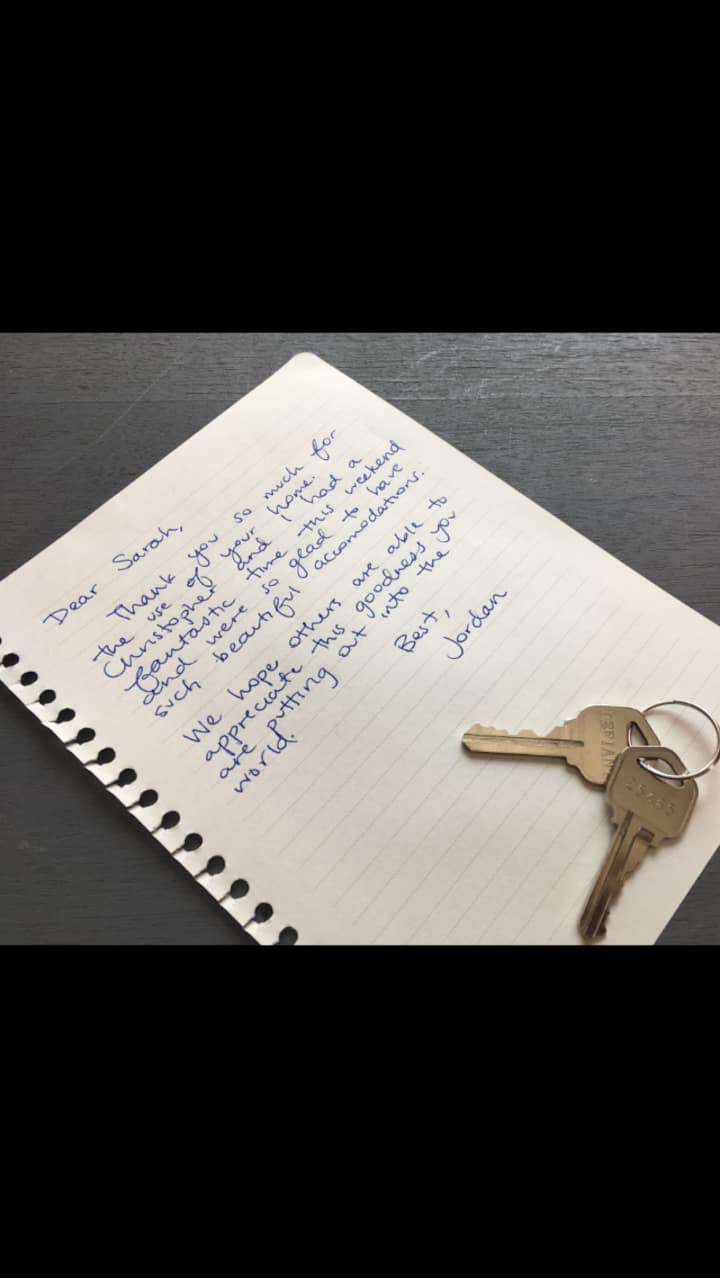 Dear Sarah,
Thank you so much for
the use of your home.
Christopher and I had a
fantastic time this weekend
and were so glad to have
such beautiful accomodations.
We hope others are able to
appreciate this goodness you
are putting out into the
world.
Best,
Jordan